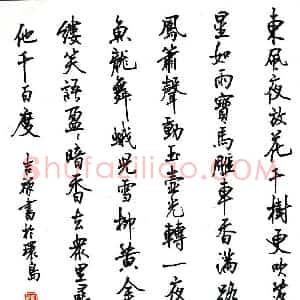 東風夜放花千樹更吹落
星如雨寶馬雕車香滿路
鳳簫聲動玉壺光轉一夜
魚龍舞蛾兒雪柳黃金
縷笑語盈〻暗香去眾里尋
他千百度
書於環島
Shufaziliao.com